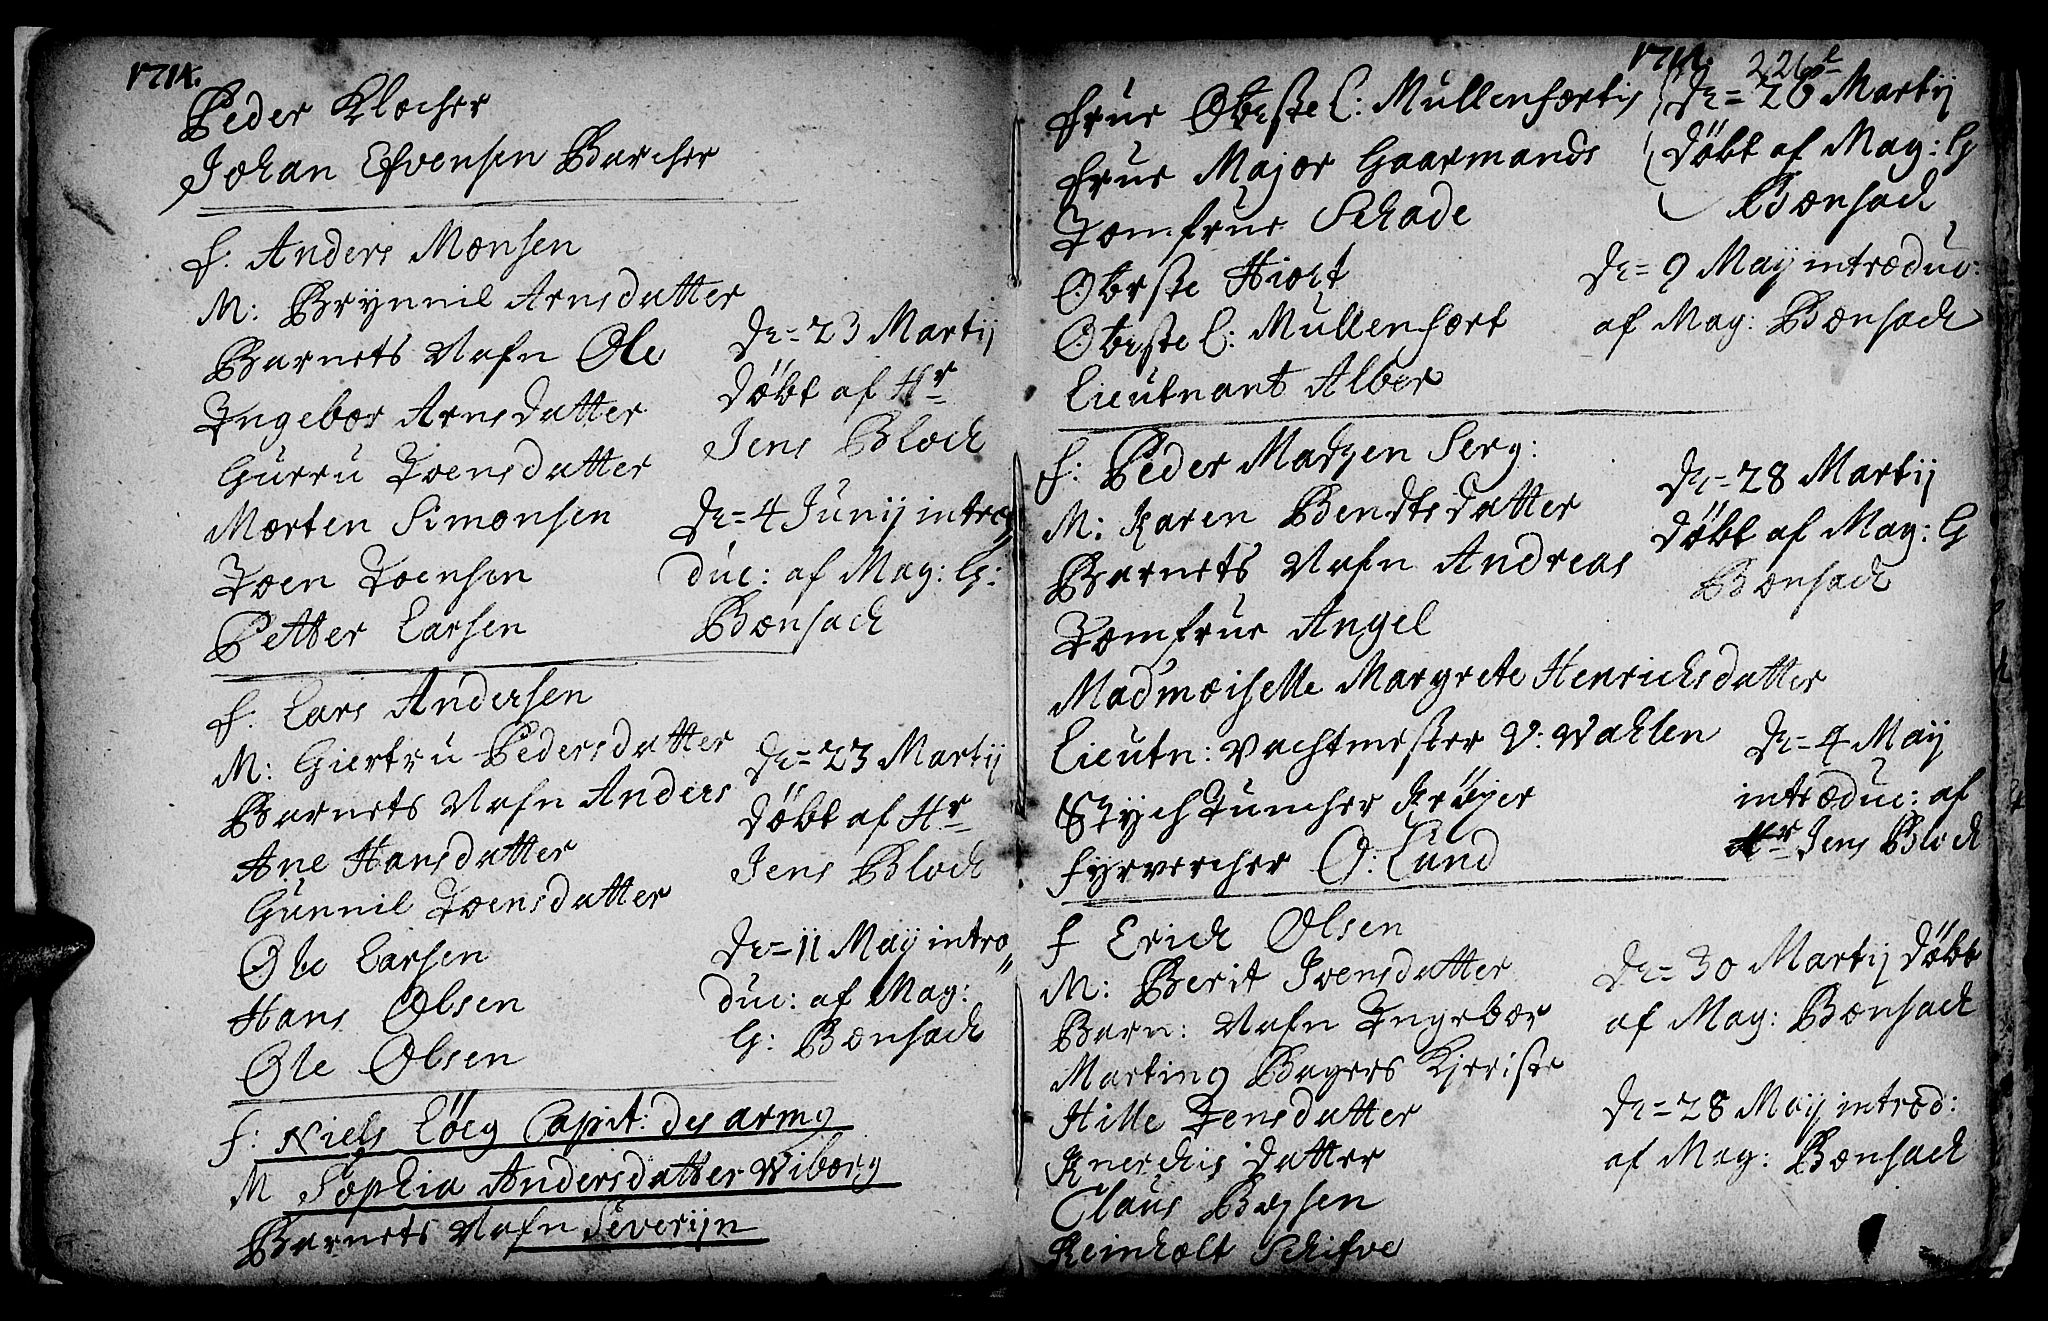 1714.
Peder Klocher
Johan Efvensen Barcher
f: Anders Monsen
M: Brÿnnil Arnsdatter
Barnets Nafn Ole
Ingebor Arnsdatter
Gurru Joensdatter
Morten Simonsen
Joen Joensen
Petter Larsen
D: = 23 Martij
döbt af Hr
Jens Block
D: = 4 Junij intro
duc: af Mag: G:
Bonsach
f: Lars Andersen
M: Giertru Pedersdatter
Barnets Nafn Anders
Ane Hansdatter
Gunnil Joensdatter
Ole Larsen
Hans Olsen
Ole Olsen
D: = 23 Martij
döbt af Hr
Jens Block
D: = 11 Maij intro
duc: af Mag:
G: Bonsach
f: Niels Löeg Capit: des arm
M Sophia Andersdatter Wiborg
Barnets Nafn Severijn
1714. 226
frue Obeste L: Mullenforts
frue Major Gaarmands
Jomfrue Schade
Oberste Hiort
Obeste L: Mullenfort
Lieutnant Alber
D: = 26 Martij
döbt af Mag: G
Bonsach
D: = 9 Maij introduc:
af Mag: Bonsach
f: Peder Madzen Serg:
M: Karen Bendtsdatter
Barnets Nafn Andreas
Jomfrue Angel
Madmoiselle Margrete Henrichsdatter
Lieutn: Vachtmester V: Vahlen
Stÿchjuncher Kröÿer
fyrvercher O: Lund
D: = 28 Martij
döbt af Mag: G
Bonsach
D: = 4 Maij
introduc: af
Hr Jens Block
f Erich Olsen
M: Berit Joensdatter
Barn: Nafn Ingebor
Marting Bagers Kjeriste
Hille Jensdatter
datter
Claus Boysen
Reinholt Schifve
D: = 30 Martij döbt
af Mag: Bonsach
D: = 28 Maij introd:
af Mag: Bonsach